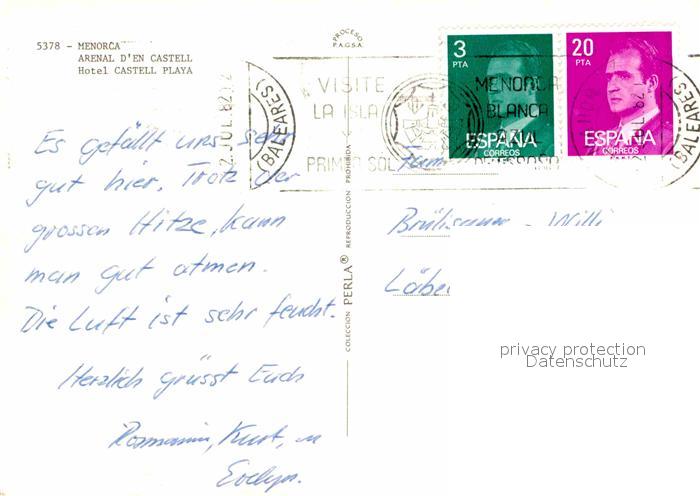 5378 - MENORCA
ARENAL D'EN CASTELL
Hotel CASTELL PLAYA
PROCESO
P.A.G.S.A.
3
PTA
ESPAÑA
CORREOS
20
PTA
ESPAÑA
CORREOS
2 JUL. 82
(BALEARES)
VISITE
LA ISLA
PRIMER SOL
MENORCA
BLANCA
Y AZUL
(BALEARES)
Es gefällt uns sehr
gut hier. Trotz der
grossen Hitze, kann
man gut atmen.
Die Luft ist sehr feucht.
Herzlich grüsst Euch
Kurt,
Evelyn.
COLECCION PERLA® REPRODUCCION PROHIBIDA
Fam
Willi
privacy protection
Datenschutz